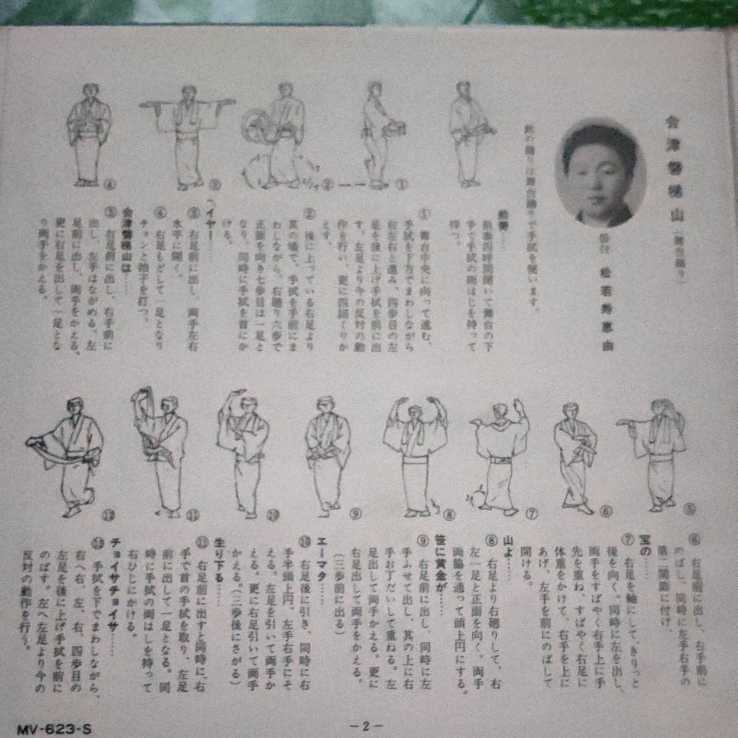 会津磐梯山(舞台踊り)
振付 松若寿恵由
此の踊りは舞台踊りで手拭を使います。
前奏……
前奏四呼間聞いて舞台の下
手で手拭の両はじを持って
待つ。
① 舞台中央に向って進む、
手拭を下方でまわしながら
右左右と進み、四歩目の左
足を後に上げ手拭を前に出
す。左足より今の反対の動
作を行い、更に四回くりか
えす。
② 後に上っている右足より
其の場で、手拭を手前にま
わしながら、右廻り六歩で
正面を向き七歩目は一足と
なり、同時に手拭を首にか
ける。
イヤー……
③ 右足前に出し、両手左右
水平に開く。
④ 右足もどして一足となり
チョンと拍子を打つ。
会津磐梯山は……
⑤ 右足前に出し、右手前に
出し、左手はながめる。左
足前に出し、両手をかえる。
更に右足を出して一足とな
り両手をかえる。
④
③
② ——
①
⑫
⑪
⑩
⑨
⑧
⑦
⑥
⑤
⑥ 右足前に出し、右手前に
のばし、同時に左手右手の
第二関節に付け、
宝の……
⑦ 右足を軸にして、きりっと
後を向く。同時に左を出し、
両手をすばやく右手上に手
先を重ね、すばやく右足に
体重をかけて、右手を上に
あげ、左手を前にのばして
開ける。
山よ……
⑧ 右足より右廻りして、右
左一足と正面を向く、両手
両脇を通って頭上円にする。
笹に黄金が……
⑨ 右足前に出し、同時に左
手ふせて出し、其の上に右
手お丁だいして重ねる。左
足出して両手かえる。更に
右足出して両手をかえる。
(三歩前に出る)
エーマタ……
⑩ 右足後に引き、同時に右
手半頭上円、左手右手にそ
える。左足を引いて両手か
える。更に右足引いて両手
かえる。(三歩後にさがる)
生り下る……
⑪ 右足前に出すと同時に、右
手で首の手拭を取り、左足
前に出して一足となる。同
時に手拭の両はしを持って
右ひじにかける。
チョイサチョイサ……
⑫ 手拭を下でまわしながら、
右へ右、左、右、四歩目の
左足を後に上げ手拭を前に
のばす。左へ左足より今の
反対の動作を行う。
MV-623-S
—2—